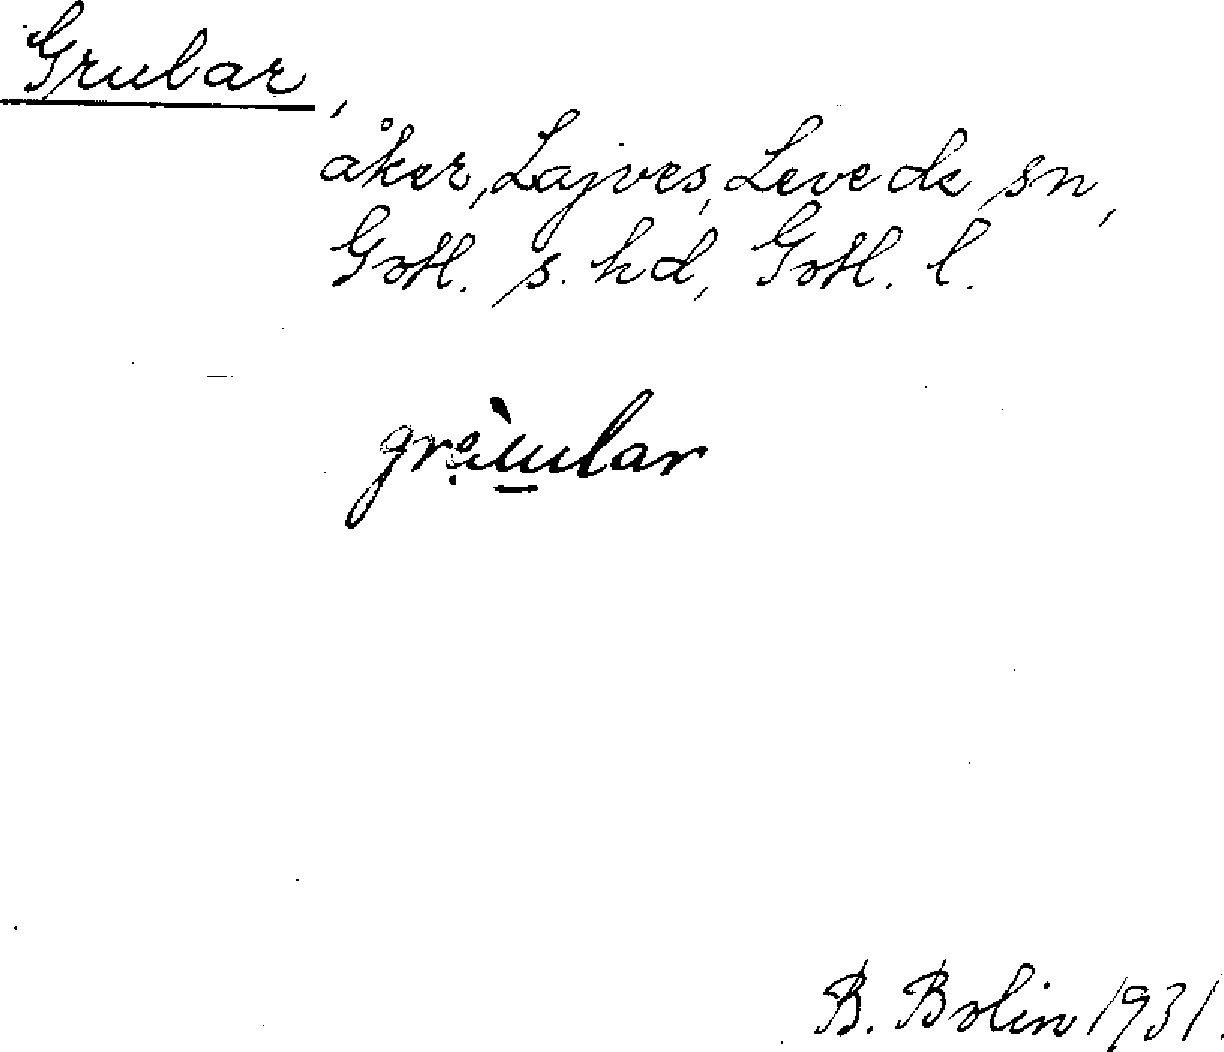 Grubar,
åker, Lajves, Levede sn,
Gotl. s. hd, Gotl. l.
B. Bolin 1931.